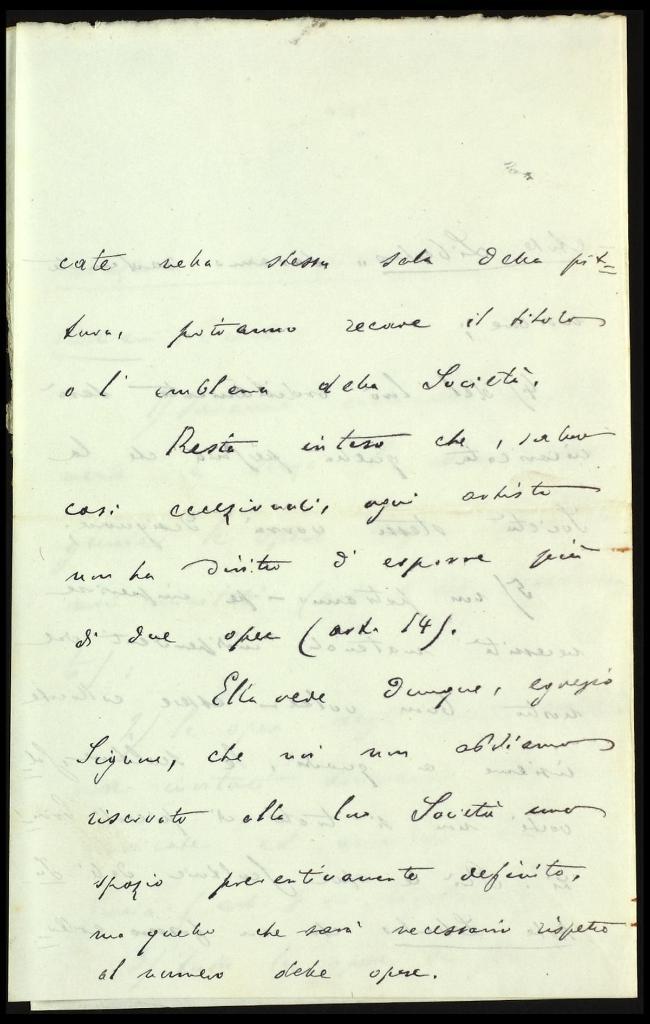 cate nella stessa sala della pit=
tura, potranno recare il titolo
o l'emblema della Società.
Resta inteso che, salvo
casi eccezionali, ogni artista
non ha diritto di esporre più
di due opere (art. 14).
Ella vede dunque, egregio
Signore, che noi non abbiamo
riservato alla loro Società uno
spazio preventivamente definito,
ma quello che sarà necessario rispetto
al numero delle opere.